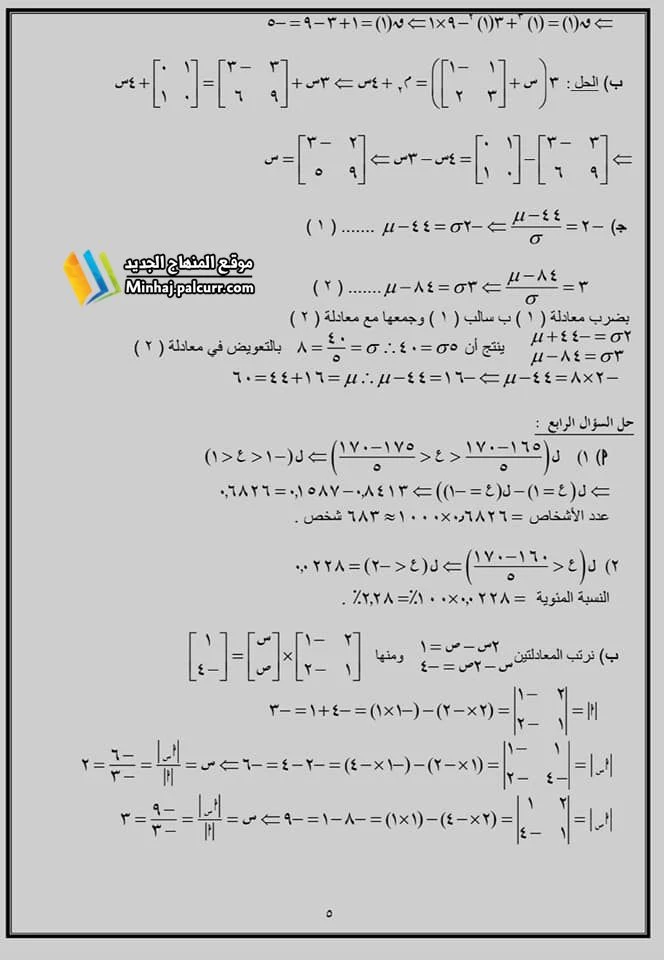 ⇐ ق(١) = (١)^٣ + ٣(١)^٢ − ٩×١ ⇐ ق(١) = ١ + ٣ − ٩ = −٥
ب) الحل : ٣(س + [١ −١ ; ٣ ٢]) = م٢ + ٤س ⇐ ٣س + [٣ −٣ ; ٩ ٦] = [١ ٠ ; ٠ ١] + ٤س
⇐ [٣ −٣ ; ٩ ٦] − [١ ٠ ; ٠ ١] = ٤س − ٣س ⇐ [٢ −٣ ; ٩ ٥] = س
ج) −٢ = (٤٤−μ)/σ ⇐ −٢σ = ٤٤−μ ....... (١)
موقع المنهاج الجديد
Minhaj.palcurr.com
٣ = (٨٤−μ)/σ ⇐ ٣σ = ٨٤−μ ....... (٢)
بضرب معادلة (١) ب سالب (١) وجمعها مع معادلة (٢)
٢σ = −٤٤+μ
٣σ = ٨٤−μ
ينتج أن ٥σ = ٤٠ ∴ σ = ٤٠/٥ = ٨ بالتعويض في معادلة (٢)
−٢×٨ = ٤٤−μ ⇐ −١٦ = ٤٤−μ ∴ μ = ١٦+٤٤ = ٦٠
حل السؤال الرابع :
أ) ١) ل((١٦٥−١٧٠)/٥ < ع < (١٧٥−١٧٠)/٥) ⇐ ل(−١ < ع < ١)
⇐ ل(ع = ١) − ل(ع = −١)) ⇐ ٠,٨٤١٣ − ٠,١٥٨٧ = ٠,٦٨٢٦
عدد الأشخاص = ٠,٦٨٢٦×١٠٠٠ ≈ ٦٨٣ شخص .
٢) ل(ع < (١٦٠−١٧٠)/٥) ⇐ ل(ع < −٢) = ٠,٠٢٢٨
النسبة المئوية = ٠,٠٢٢٨×١٠٠٪ = ٢,٢٨٪ .
ب) نرتب المعادلتين ٢س − ص = ١
س − ٢ص = −٤
ومنها [٢ −١ ; ١ −٢] × [س ; ص] = [١ ; −٤]
|أ| = |٢ −١ ; ١ −٢| = (٢×−٢) − (−١×١) = −٤+١ = −٣
|أس| = |١ −١ ; −٤ −٢| = (١×−٢) − (−١×−٤) = −٢−٤ = −٦ ⇐ س = |أس|/|أ| = −٦/−٣ = ٢
|أس| = |٢ ١ ; ١ −٤| = (٢×−٤) − (١×١) = −٨−١ = −٩ ⇐ س = |أس|/|أ| = −٩/−٣ = ٣
٥